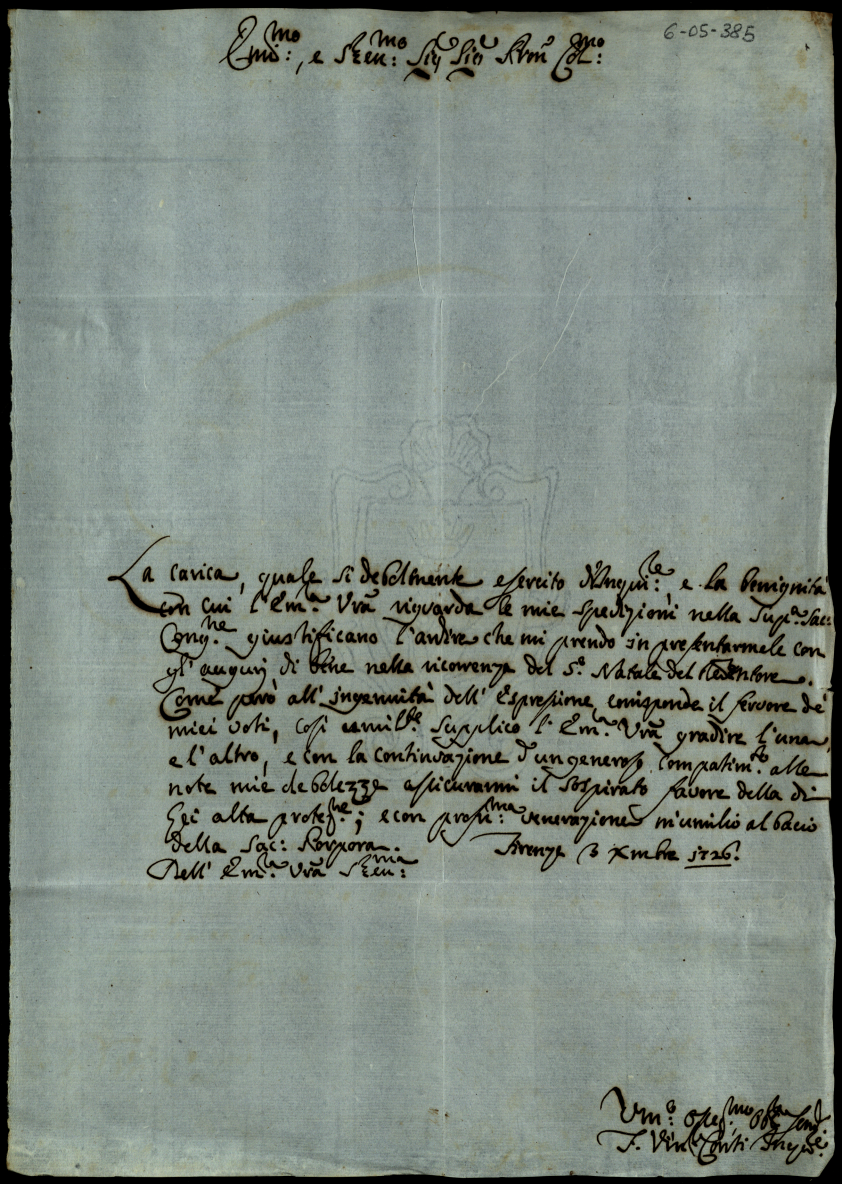 6-05-385
Em:mo, e R:mo Sig: Sig: Pron Col:mo
La carica, quale sì debolmente esercito d'Inqui:re, e la benignità
con cui l'Em:a Vrã riguarda le mie spedizioni nella Sup:a Sac:
Cong:ne giustificano l'ardire che mi prendo in presentarmele con
gl'augurj di bene nella ricorrenza del S:o Natale del Redentore.
Come però all'ingenuità dell'Espresione corrisponde il fervore de'
miei voti, così umil:te supplico l'Em:a Vrã gradire l'una,
e l'altro, e con la continuazione d'un generoso compatim:to alle
note mie debolezze assicurarmi il sospirato favore della di
Lei alta protez:ne; e con prof:ma venerazione m'umilio al bacio
della Sac: Porpora. Firenze 3 Xmbre 1726.
Dell'Em:a Vrã R:ma
Um:o
F. Vin: Conti Inq:re